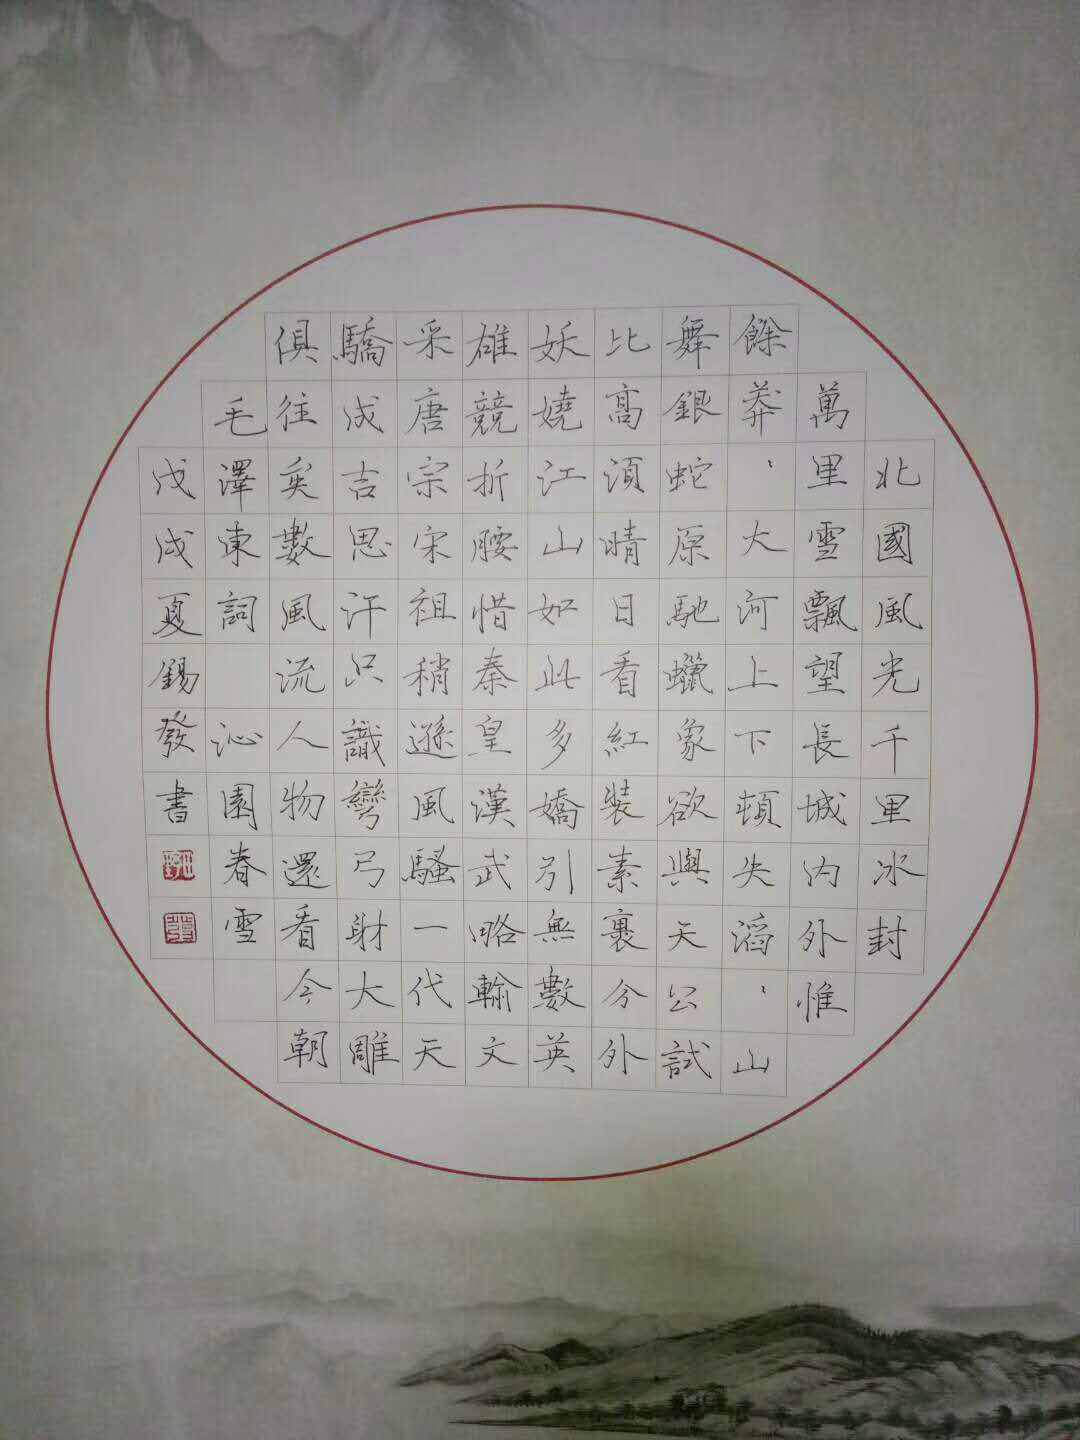 北國風光千里冰封
萬里雪飄望長城內外惟
餘莽、大河上下頓失滔、山
舞銀蛇原馳蠟象欲與天公試
比高須晴日看紅裝素裹分外
妖嬈江山如此多嬌引無數英
雄競折腰惜秦皇漢武略輸文
采唐宗宋祖稍遜風騷一代天
驕成吉思汗只識彎弓射大雕
俱往矣數風流人物還看今朝
毛澤東詞 沁園春雪
戊戌夏錫發書